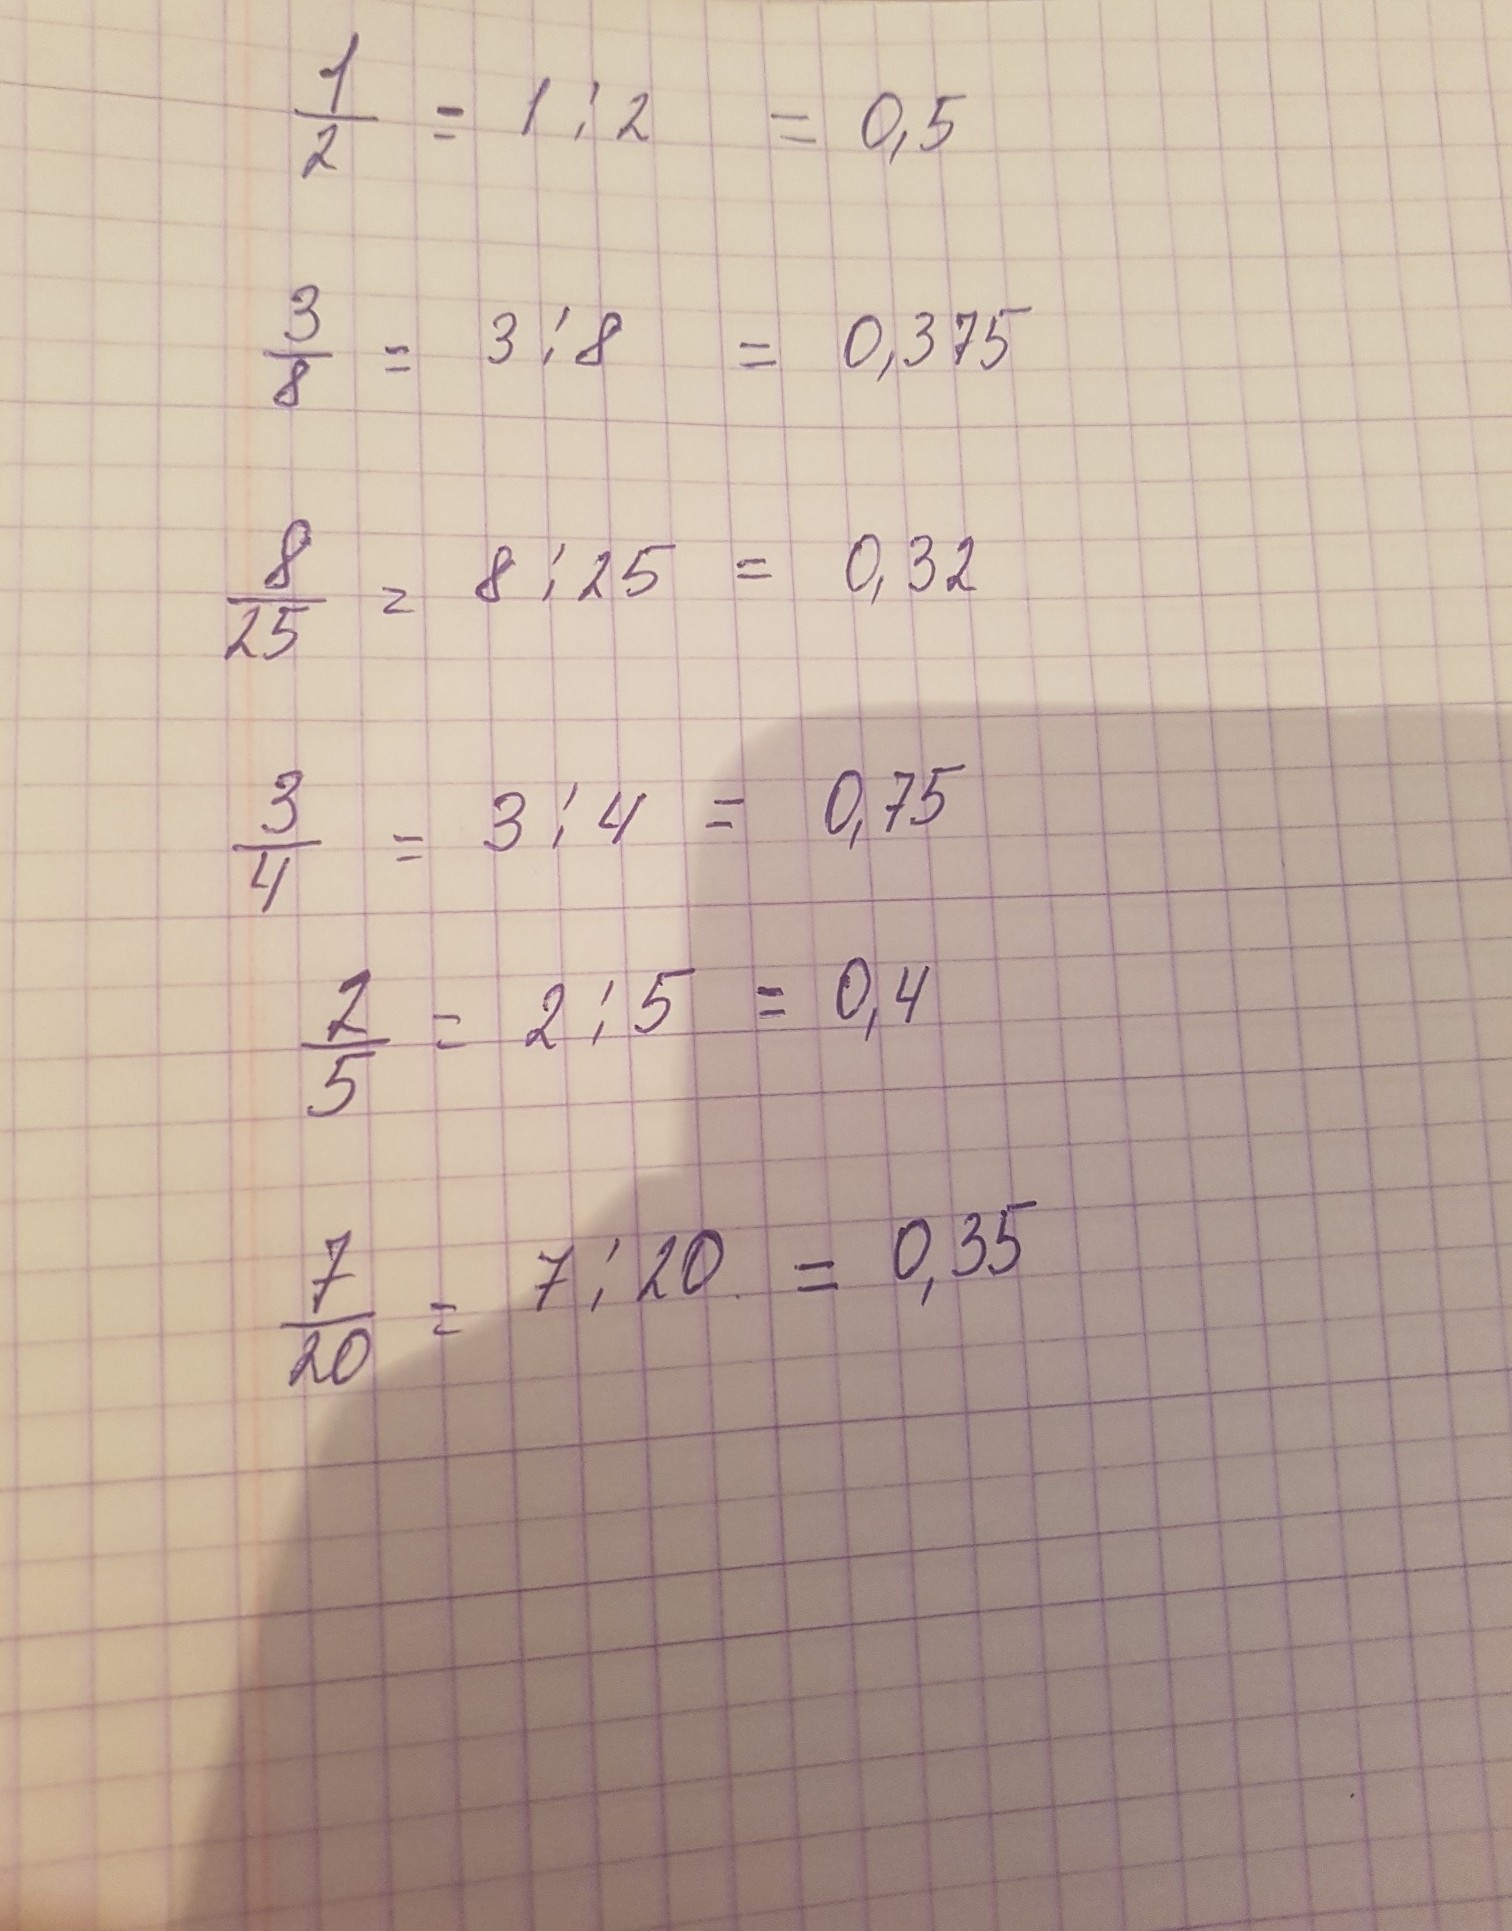 1/2 = 1 : 2 = 0,5
3/8 = 3 : 8 = 0,375
8/25 = 8 : 25 = 0,32
3/4 = 3 : 4 = 0,75
2/5 = 2 : 5 = 0,4
7/20 = 7 : 20 = 0,35